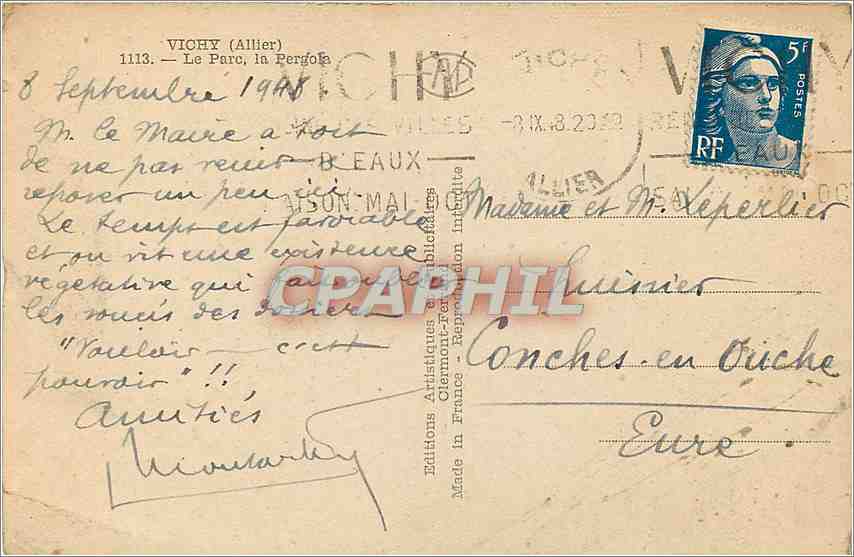 VICHY (Allier)
1113. — Le Parc, la Pergola
8 Septembre 1948
M. le Maire a tort
de ne pas venir
reposer un peu ici
Le temps est favorable
et on vit une existence
végétative qui
les soucis des dossiers
"Vouloir — c'est
pouvoir" !!
Amitiés
Editions Artistiques et Publicitaires
Clermont-Fer
Made in France - Reproduction interdite
VICHY
VILLES
D'EAUX
SAISON: MAI-OC
8.IX.48.20
ALLIER
5F
POSTES
RF
EAU
Madame et M. Leperlier
huissier
Conches-en Ouche
Eure
CPAPHIL